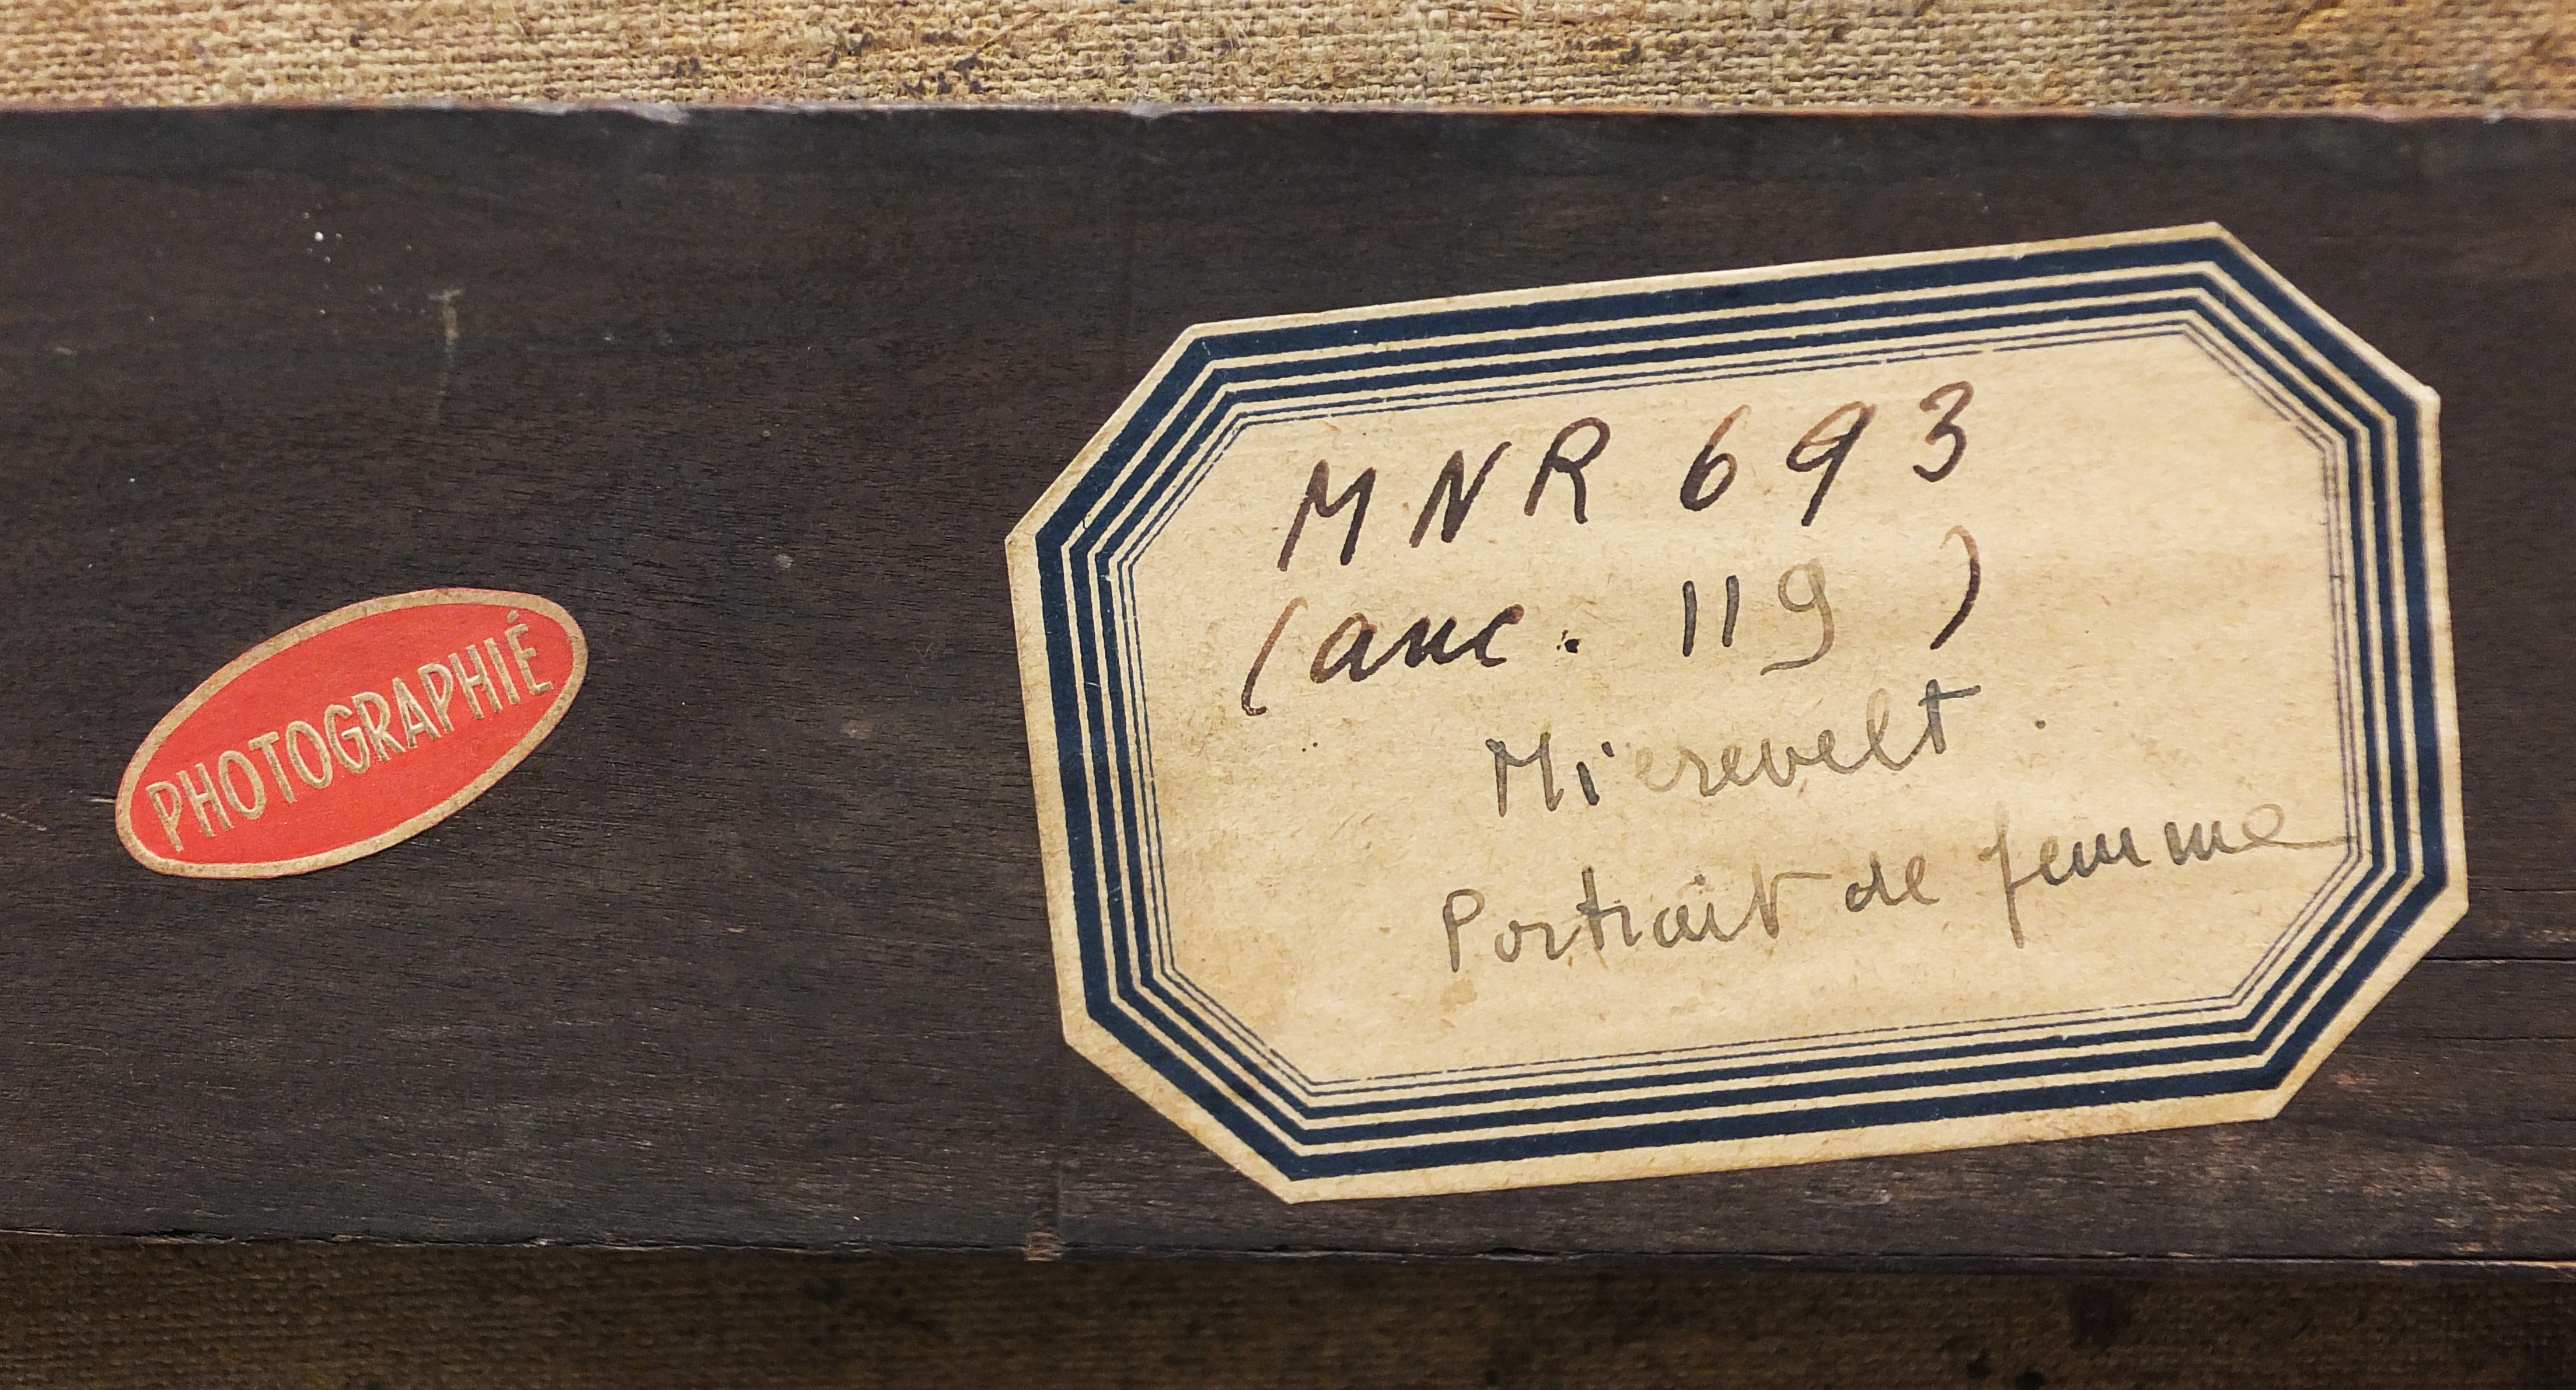 PHOTOGRAPHIÉ
MNR 693
(anc. 119)
Mierevelt.
Portrait de femme